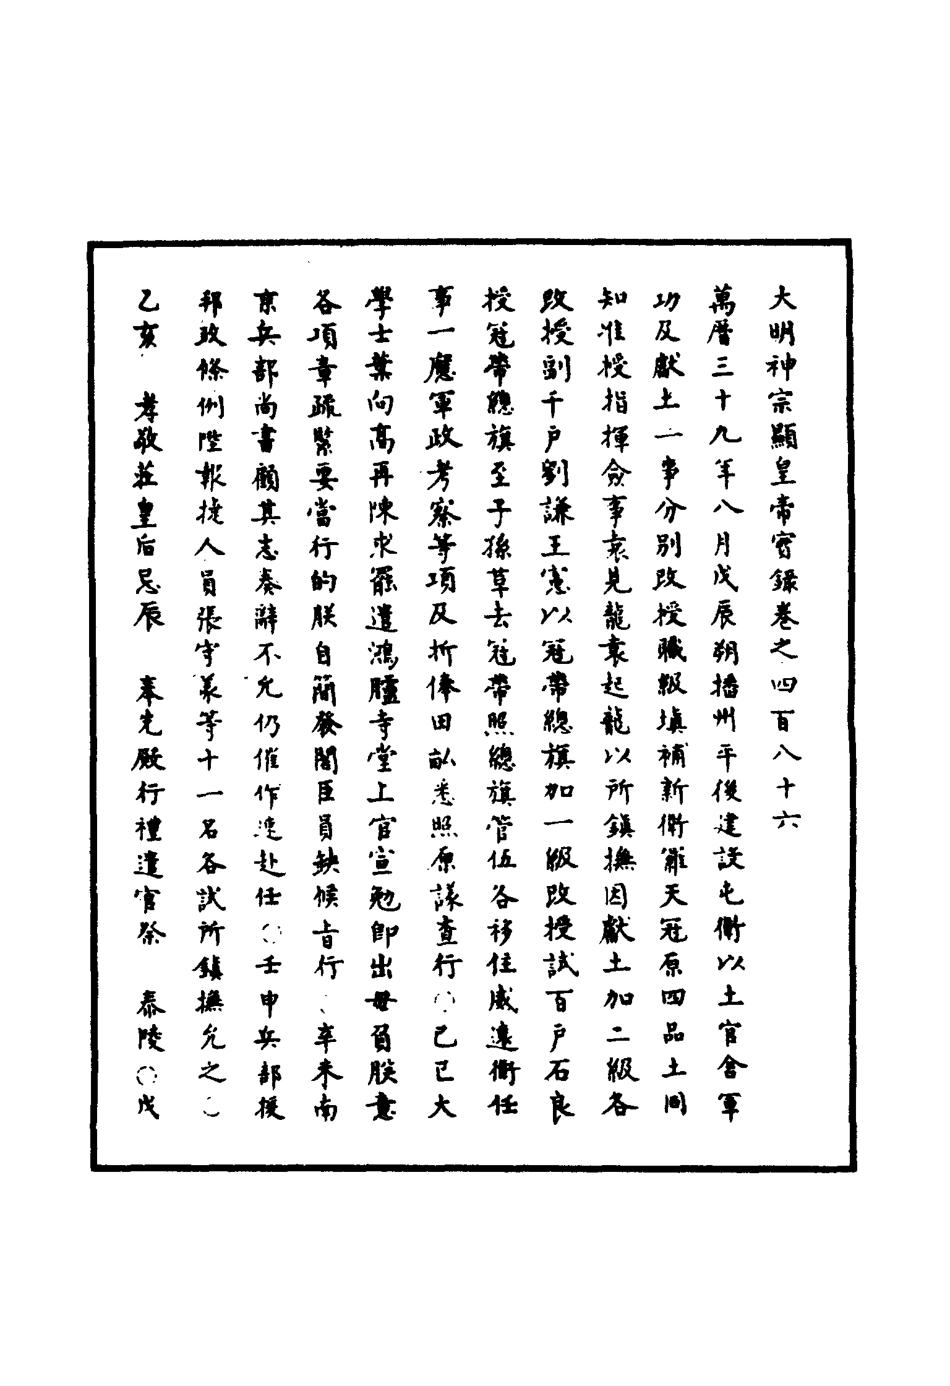 大明神宗顯皇帝實錄卷之四百八十六
萬曆三十九年八月戊辰朔播州平後建設屯衛以土官舍軍
功及獻土一事分別改授職級填補新衛雒天冠原四品土同
知准授指揮僉事袁見龍袁起龍以所鎮撫因獻土加二級各
改授副千戶劉謙王憲以冠帶總旗加一級改授試百戶石良
授冠帶總旗至子孫革去冠帶照總旗管伍各移住威遠衛任
事一應軍政考察等項及折俸田畝悉照原議查行○己巳大
學士葉向高再陳求罷遣鴻臚寺堂上官宣勉即出毋負朕意
各項章疏緊要當行的朕自簡發閣臣員缺候旨行○辛未南
京兵部尚書顧其志奏辭不允仍催作速赴任○壬申兵部援
邦政條例陞報捷人員張守義等十一名各試所鎮撫允之○
乙亥　孝敬莊皇后忌辰　奉先殿行禮遣官祭　泰陵○戊